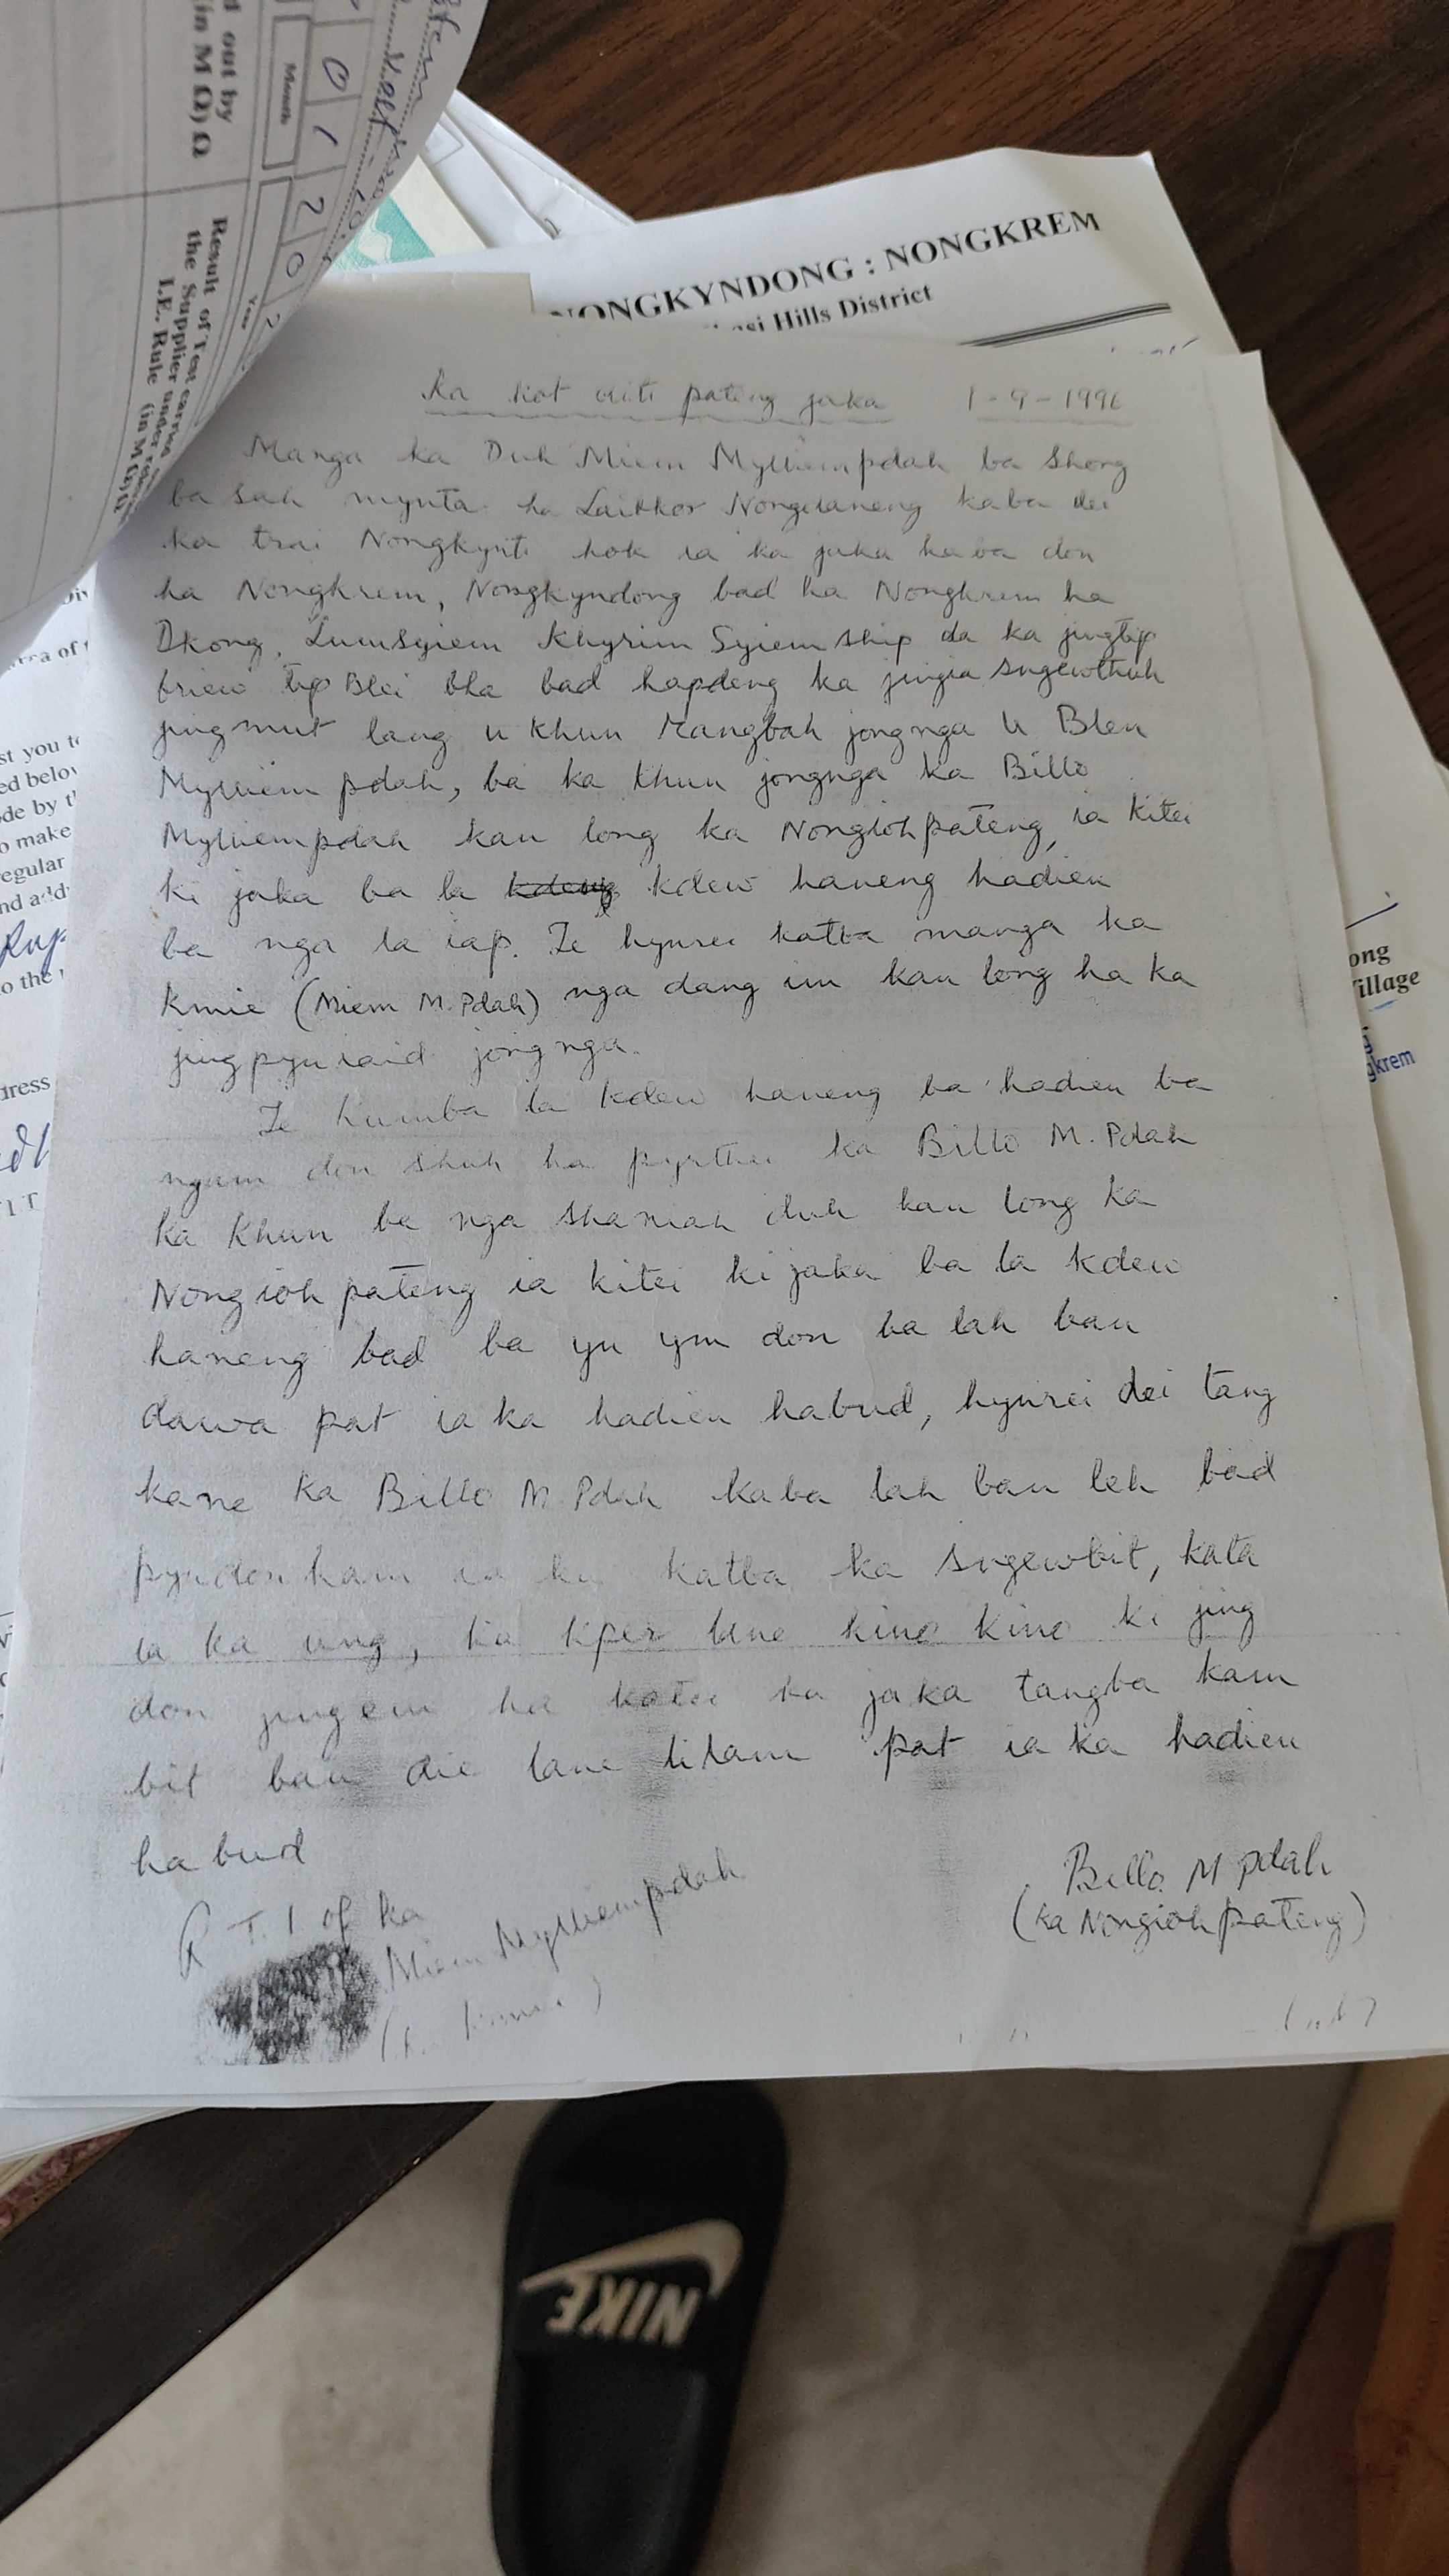 d out by
in M Ω) Ω
Month
0 1 2 0 2
Year
Result of Test carried
the Supplier under
I.E., Rule (in M Ω) Ω
NONGKYNDONG : NONGKREM
Hills District
Ka kot aiti pateng jaka 1-9-1996
Manga ka Duh Miem Mylliempdah ba shong
ba sah mynta ha Laitkor Nongdaneng kaba dei
ka trai Nongkynti hok ia ka jaka kaba don
ha Nongkrem, Nongkyndong bad ha Nongkrem ha
Dkong, Lumsyiem Khyrim Syiemship da ka jingtip
briew tip Blei bha bad hapdeng ka jingia sngewthuh
jingmut lang u khun rangbah jongnga U Blen
Mylliempdah, ba ka khun jongnga ka Billo
Mylliempdah kan long ka Nongiohpateng, ia kitei
ki jaka ba la kdew haneng hadien
ba nga la iap. Te hynrei katba manga ka
kmie (Miem M. Pdah) nga dang im kan long ha ka
jingpyniaid jongnga.
Te kumba la kdew haneng ba hadien ba
ngam don shuh ha pyrthei ka Billo M. Pdah
ka khun ba nga shaniah duh kan long ka
Nongioh pateng ia kitei ki jaka ba la kdew
haneng bad ba yn ym don ba lah ban
dawa pat ia ka hadien habud, hynrei dei tang
kane ka Billo M Pdah kaba lah ban leh bad
pyndonkam ia ki katba ka sngewbit, kata
ia ka iing, ka kper lane kino kino ki jing
don jingem ha katei ka jaka tangba kam
bit ban die lane lilam pat ia ka hadien
habud
R T. I of ka
Miem Mylliempdah
Billo M Pdah
(ka Nongioh pateng)
st you to
ed below
de by t
o make
regular
nd add
o the
dress
ong
illage
gkrem
NIKE